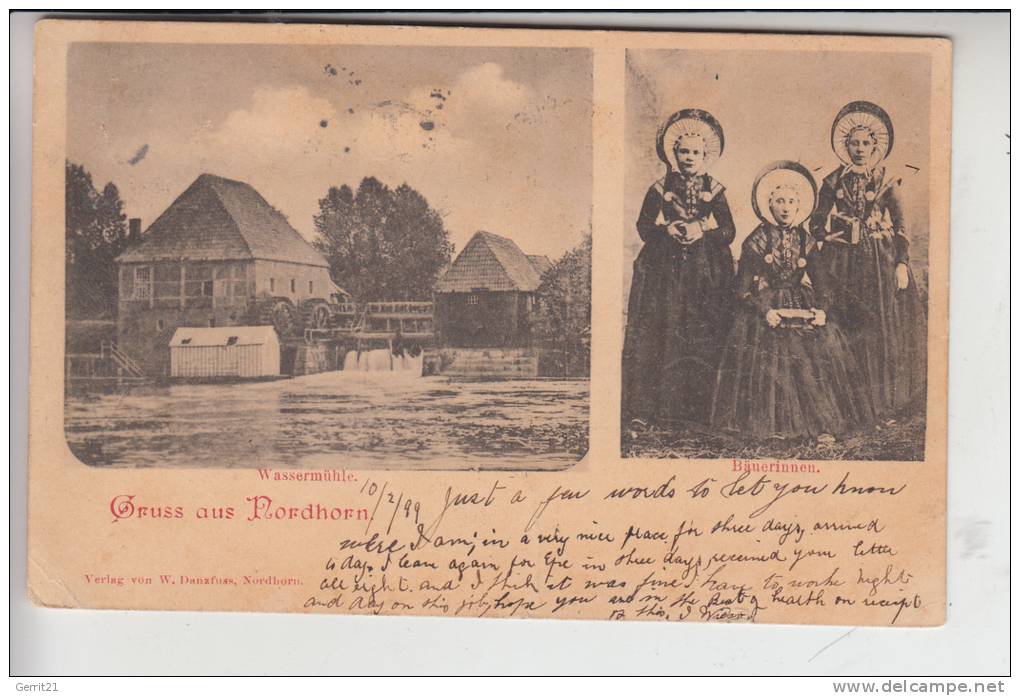 Wassermühle.
Bäuerinnen.
Gruss aus Nordhorn
Verlag von W. Danzfuss, Nordhorn.
10/2/99 Just a few words to let you know
were I am; in a very nice place for three days, arrived
to day. I leave again for in three days, received your letter
all right. and I think it was fine I have to worke night
and day on this job, hope you are in the best of health on receipt
of this. I
Gerrit21
www.delcampe.net